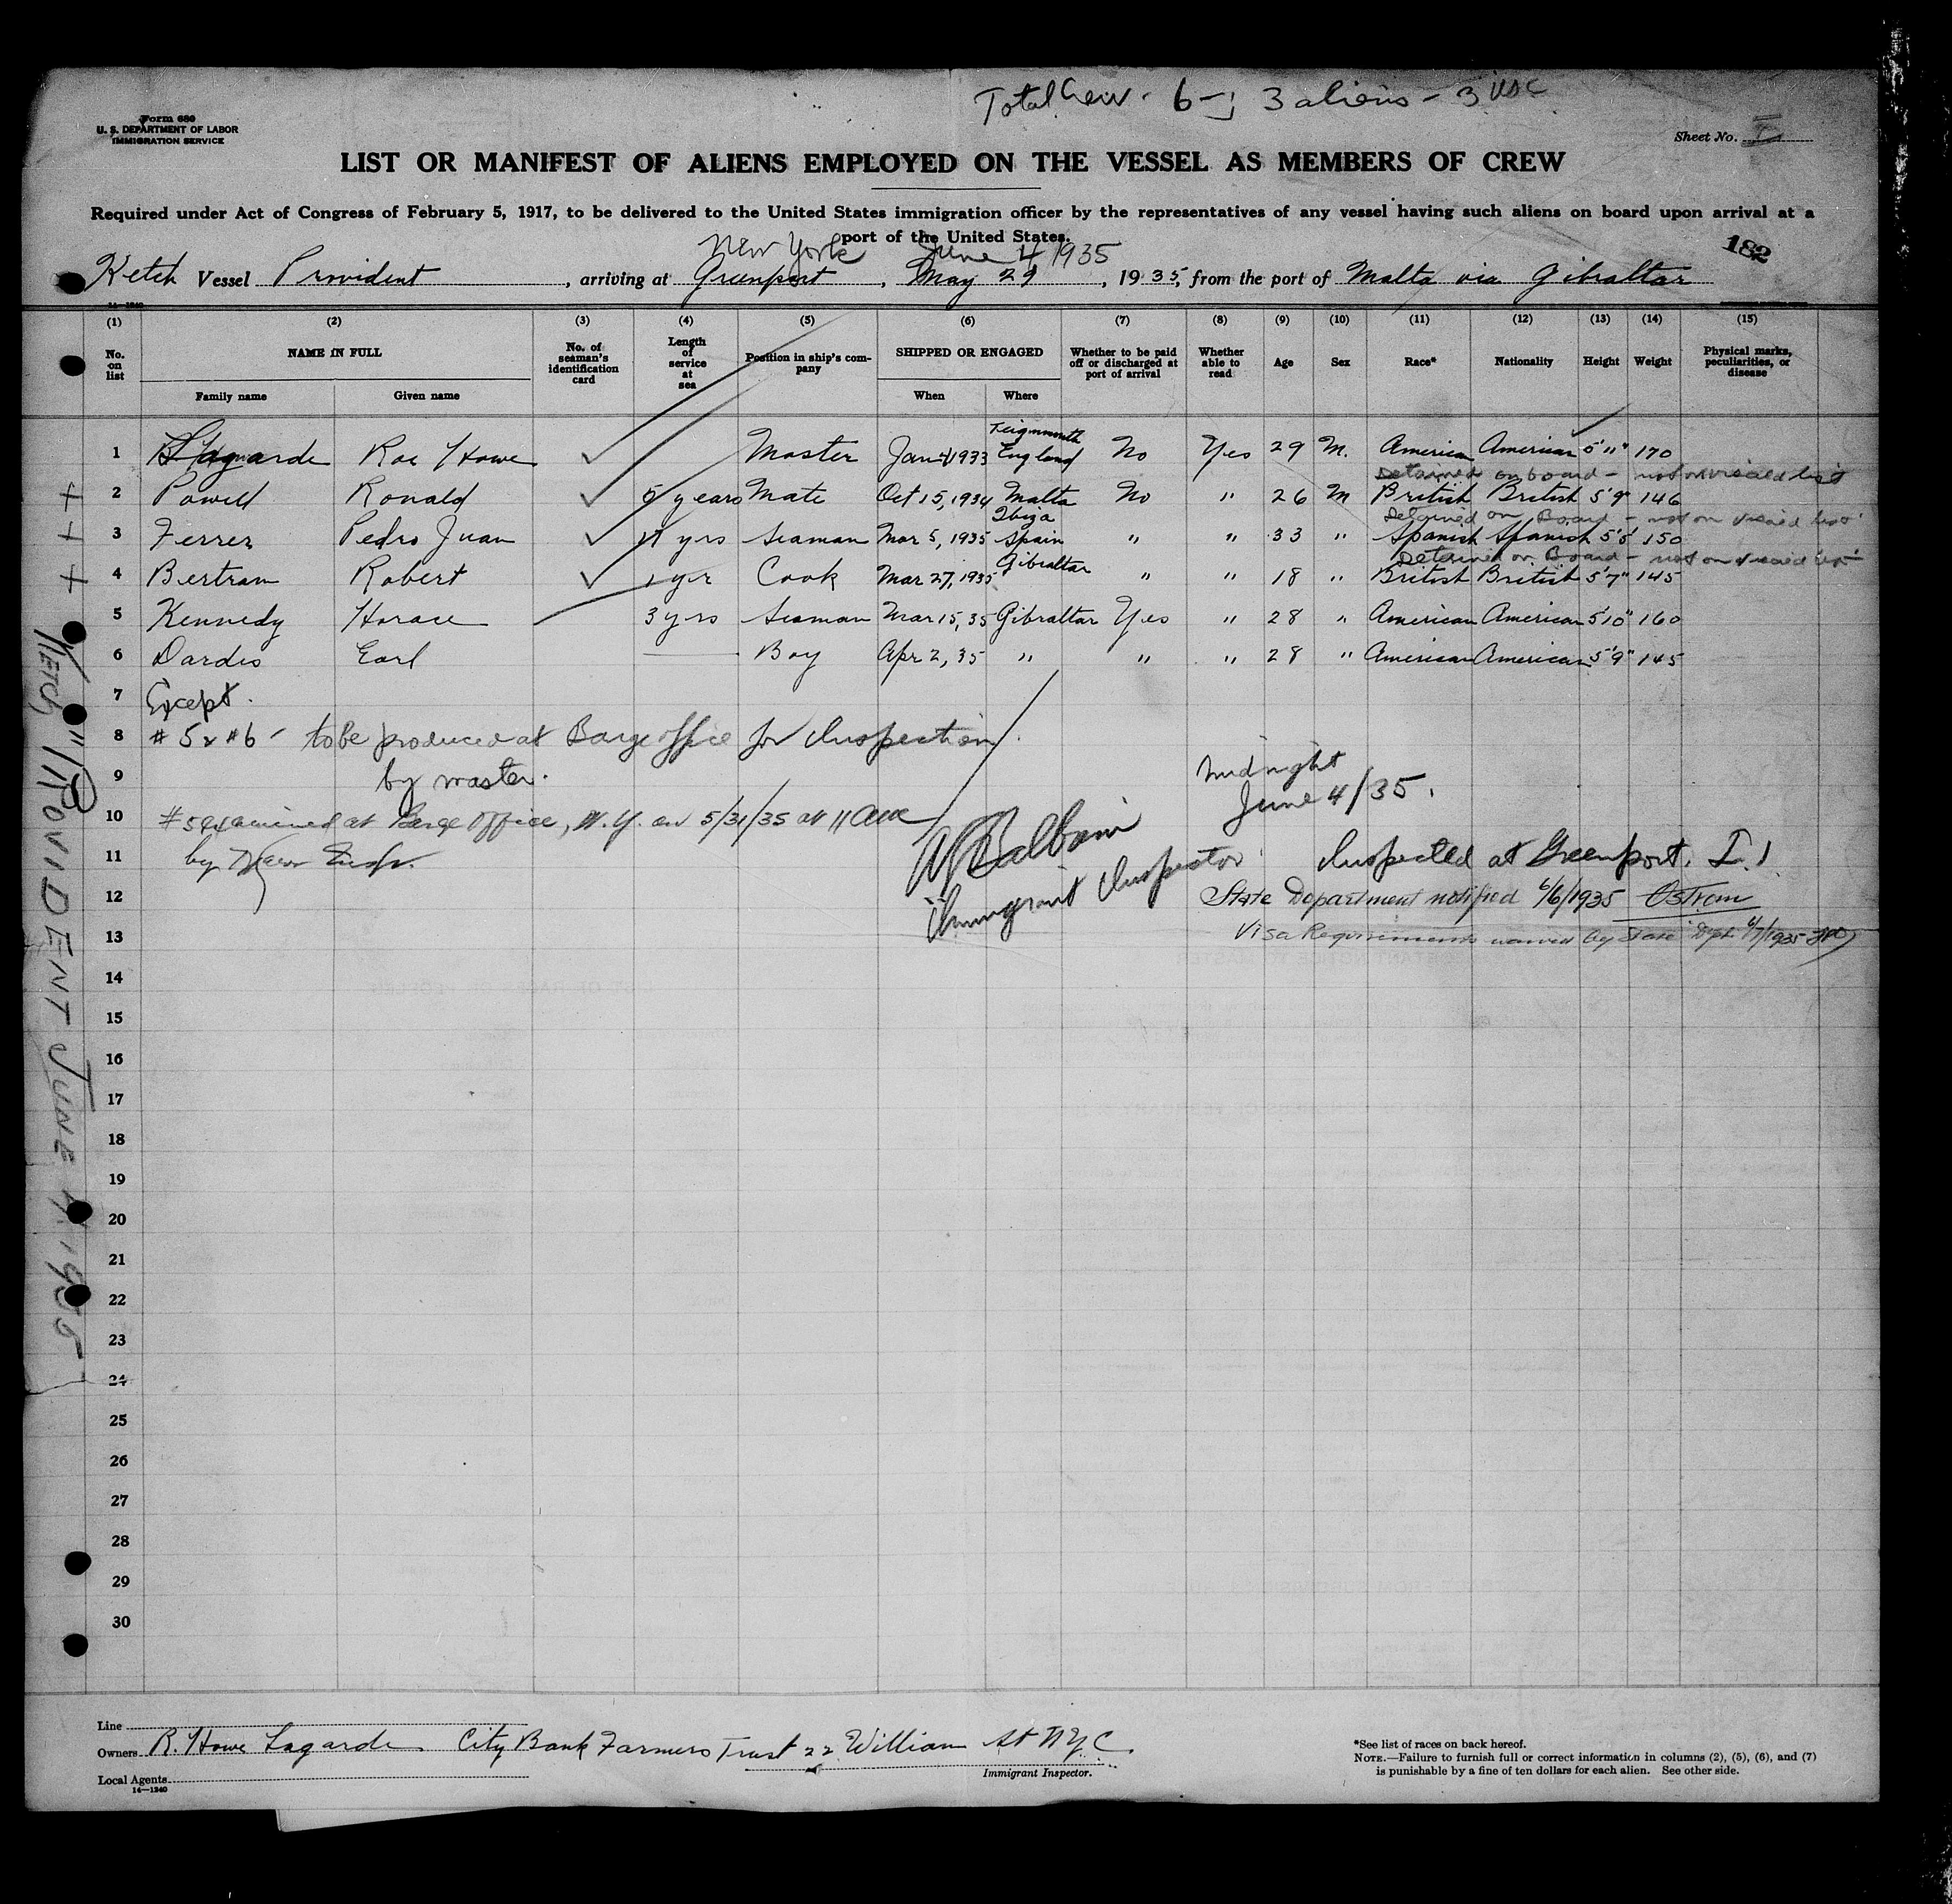 Total Crew - 6 - ; 3 aliens - 3 USC
Form 680
U. S. DEPARTMENT OF LABOR
IMMIGRATION SERVICE
Sheet No.
LIST OR MANIFEST OF ALIENS EMPLOYED ON THE VESSEL AS MEMBERS OF CREW
Required under Act of Congress of February 5, 1917, to be delivered to the United States immigration officer by the representatives of any vessel having such aliens on board upon arrival at a
port of the United States.
New York June 4 1935
182
Ketch Vessel Provident, arriving at Greenport, May 29, 1935, from the port of Malta via Gibraltar
14—1240
(1) (2) (3) (4) (5) (6) (7) (8) (9) (10) (11) (12) (13) (14) (15)
No. on list NAME IN FULL No. of seaman's identification card Length of service at sea Position in ship's company SHIPPED OR ENGAGED Whether to be paid off or discharged at port of arrival Whether able to read Age Sex Race* Nationality Height Weight Physical marks, peculiarities, or disease
Family name Given name When Where
1 Lagarde Roe Howe ✓ Master Jan 1933 Teignmouth England No Yes 29 M. American American 5'11" 170
Detained on board - not on visaed list
2 Powell Ronald ✓ 5 years Mate Oct 15, 1934 Malta No " 26 M British British 5'9" 146
Detained on Board - not on visaed list
3 Ferrer Pedro Juan ✓ yrs Seaman Mar 5, 1935 Ibiza Spain " " 33 " Spanish Spanish 5'5" 150
Detained on Board - not on visaed list
4 Bertram Robert ✓ 1 yr Cook Mar 27, 1935 Gibraltar " " 18 " British British 5'7" 145
5 Kennedy Horace 3 yrs Seaman Mar 15, 35 Gibraltar Yes " 28 " American American 5'10" 160
6 Dardis Earl Boy Apr 2, 35 " " " 28 " American American 5'9" 145
7 Except.
8 # 5 & #6 - to be produced at Barge office for Inspection.
9 by master.
midnight
June 4/35.
10 #5 examined at Barge Office, N.Y. on 5/31/35 at 11 AM
11 by Insp.
Immigrant Inspector
Inspected at Greenport, L.I.
12 State Department notified 6/6/1935 Ostrom
13 Visa Requirements waived by State Dept. 6/7/1935
14
15
16
17
18
19
20
21
22
23
24
25
26
27
28
29
30
KETCH "PROVIDENT" JUNE 4. 1935
Line
Owners R. Howe Lagarde City Bank Farmers Trust 22 William St NYC.
Local Agents
14—1240
Immigrant Inspector.
*See list of races on back hereof.
NOTE.—Failure to furnish full or correct information in columns (2), (5), (6), and (7)
is punishable by a fine of ten dollars for each alien. See other side.